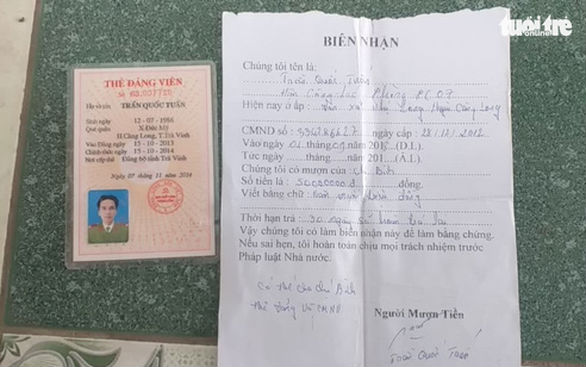 THẺ ĐẢNG VIÊN
Số
Họ và tên TRẦN QUỐC TUẤN
Sinh ngày 12 - 07 - 1986
Quê quán X.Đức Mỹ
H.Càng Long, T.Trà Vinh
Vào Đảng ngày 15 - 10 - 2013
Chính thức ngày 15 - 10 - 2014
Nơi cấp thẻ Đảng bộ tỉnh Trà Vinh
Ngày 07 tháng 11 năm 2014
tuổi trẻ
online
BIÊN NHẬN
Chúng tôi tên là:
Trần Quốc Tuấn
Công tác Phòng PC 07
Hiện nay ở ấp : xã Long
CMND số : cấp : 28/12/2012
Vào ngày 01 tháng 201 (D.L).
Tức ngày ......tháng ......năm 201...(Â.L).
Chúng tôi có mượn của chú Bình
Số tiền là : đồng.
Viết bằng chữ: Năm mươi triệu đồng
Thời hạn trả : 30 ngày
Vậy chúng tôi có làm biên nhận này để làm bằng chứng.
Nếu sai hẹn, tôi hoàn toàn chịu mọi trách nhiệm trước
Pháp luật Nhà nước.
Có thế cho chú Bình
thẻ Đảng và CMND
Người Mượn Tiền
Trần Quốc Tuấn